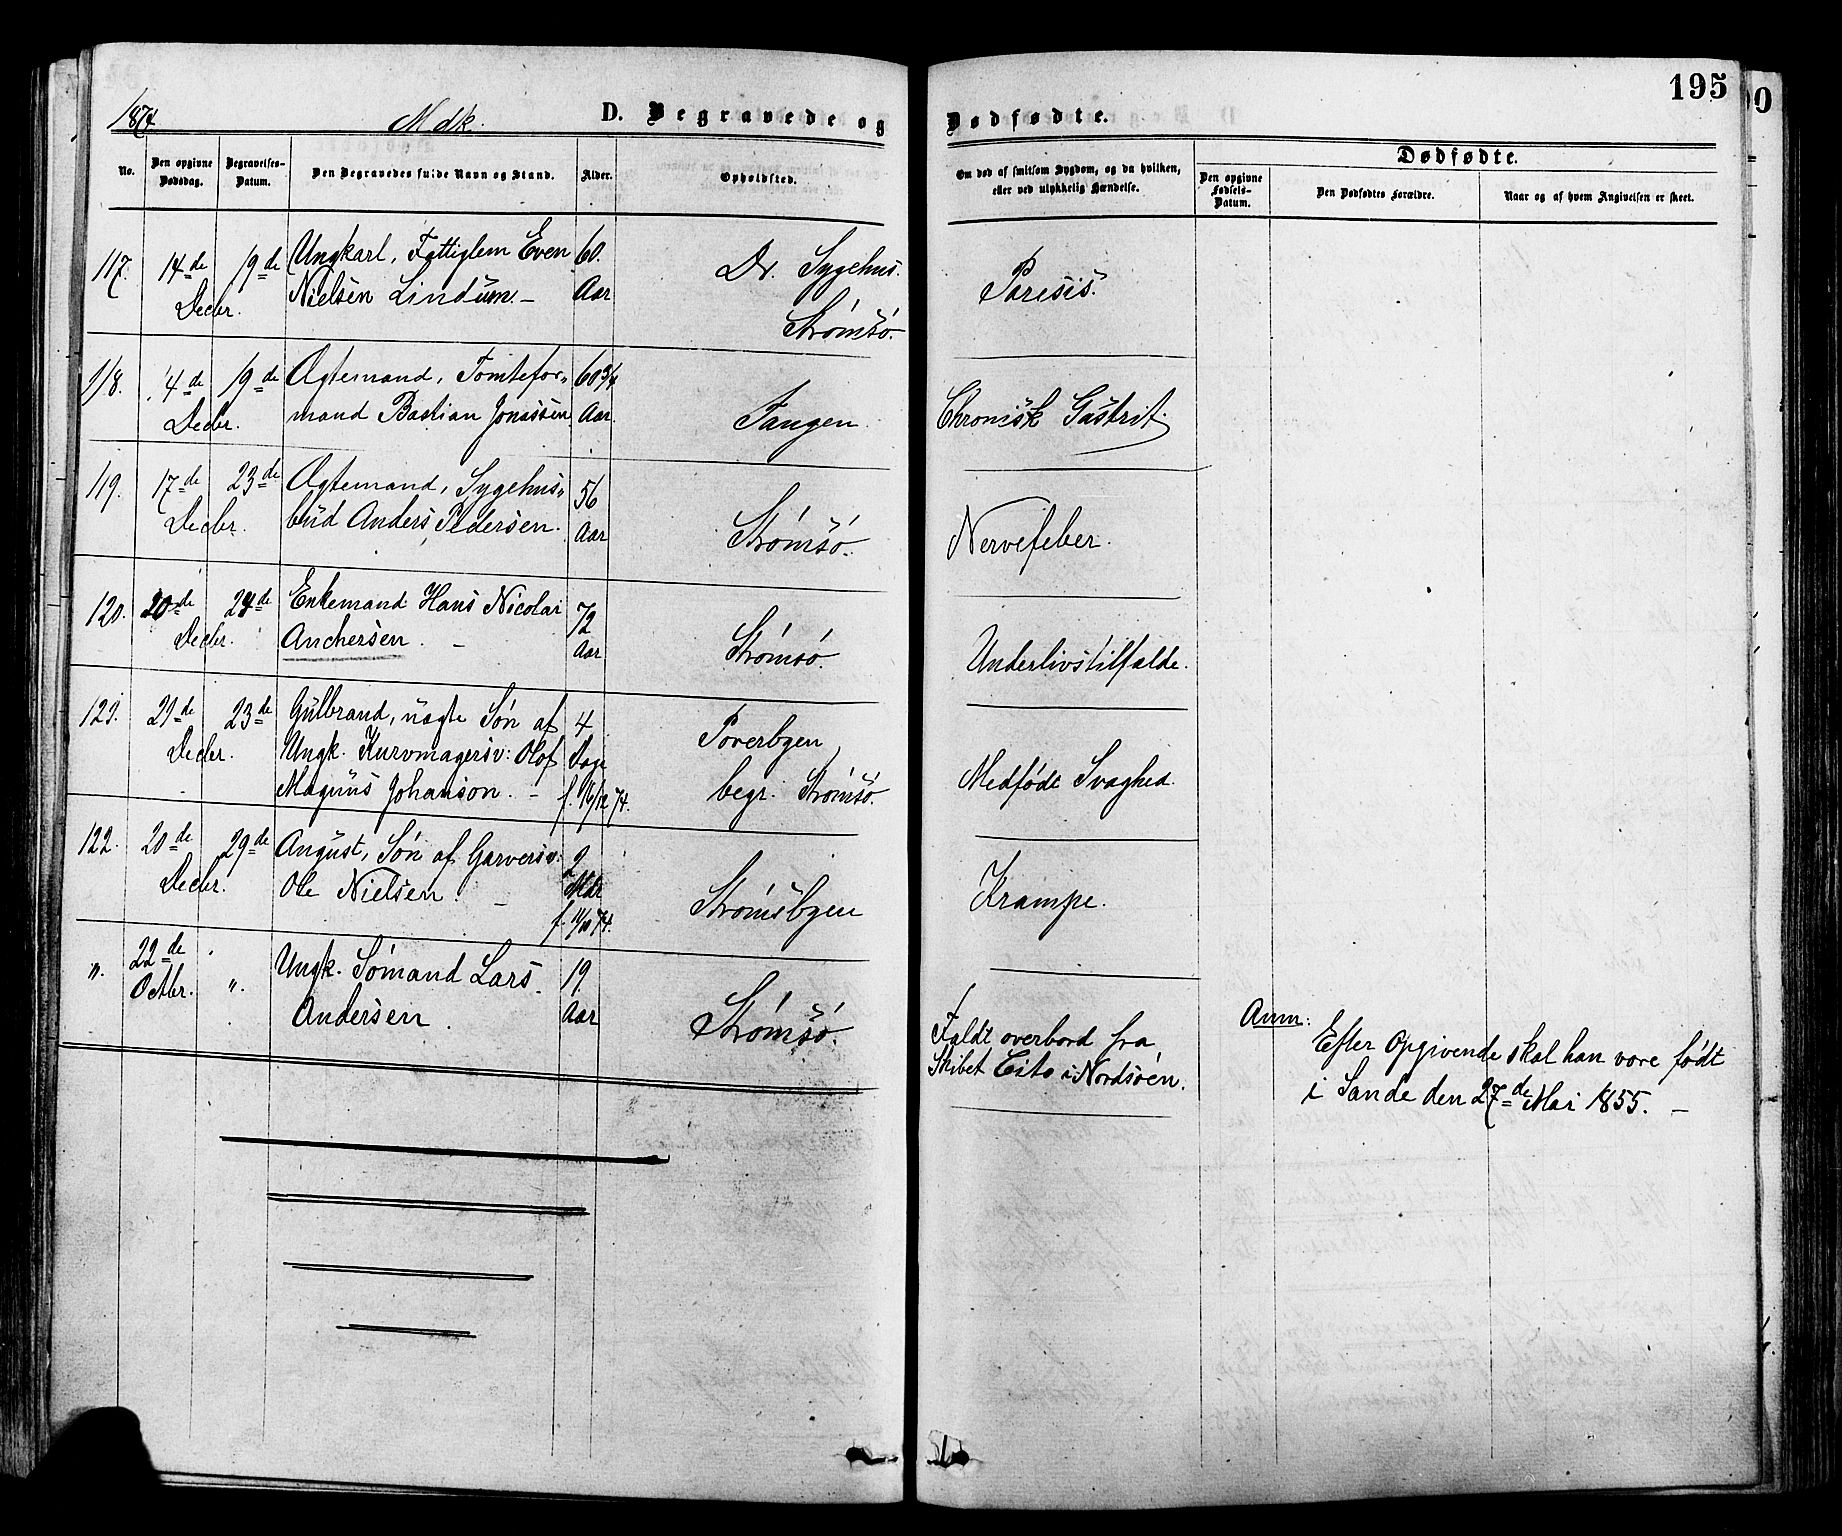 195
1874. Mdk. D. Begravede og Dødfødte.
No. Den opgivne Dødsdag. Begravelses-Datum. Den Begravedes fulde Navn og Stand. Alder. Opholdsted. Om død af smitsom Sygdom, og da hvilken, eller ved ulykkelig Hændelse.
Dødfødte.
Den opgivne Fødsels-Datum. Den Dødfødtes Forældre. Naar og af hvem Angivelsen er skeet.
117. 14de 19de Ungkarl, Fattiglem Even 60. Dr. Sygehus. Paresis.
Decbr. Nielsen Lindum. – Aar
Strømsø.
118. 14de 19de Ægtemand, Tomtefor- 60 3/4
Decbr. mand Bastian Jonassen Aar. Tangen. Chronisk Gastrit.
119. 17de 23de Ægtemand, Sygehus- 56
Decbr. bud Anders Pedersen. Aar Strømsø. Nervefeber.
120. 20de 24de Enkemand Hans Nicolai 72
Decbr. Anchersen. – Aar Strømsø. Underlivstilfælde.
121. 21de 23de Gulbrand, uægte Søn af 4 Toverbyen,
Decbr. Ungk. Kurvmagersv: Olof Dage begr. Strømsø. Medfødt Svaghed.
Magnus Johanson. – f. 16/12 74.
122. 20de 29de August, Søn af Garversv: 2
Decbr. Ole Nielsen. – Mdr Strømsbyen Krampe.
f. 11/10 74.
". 22de ". Ungk. Sømand Lars 19
Octbr. Andersen. Aar Strømsø. Faldt overbord fra
Skibet Cito i Nordsøen.
Anm: Efter Opgivende skal han være født
i Sande den 27de Mai 1855. –